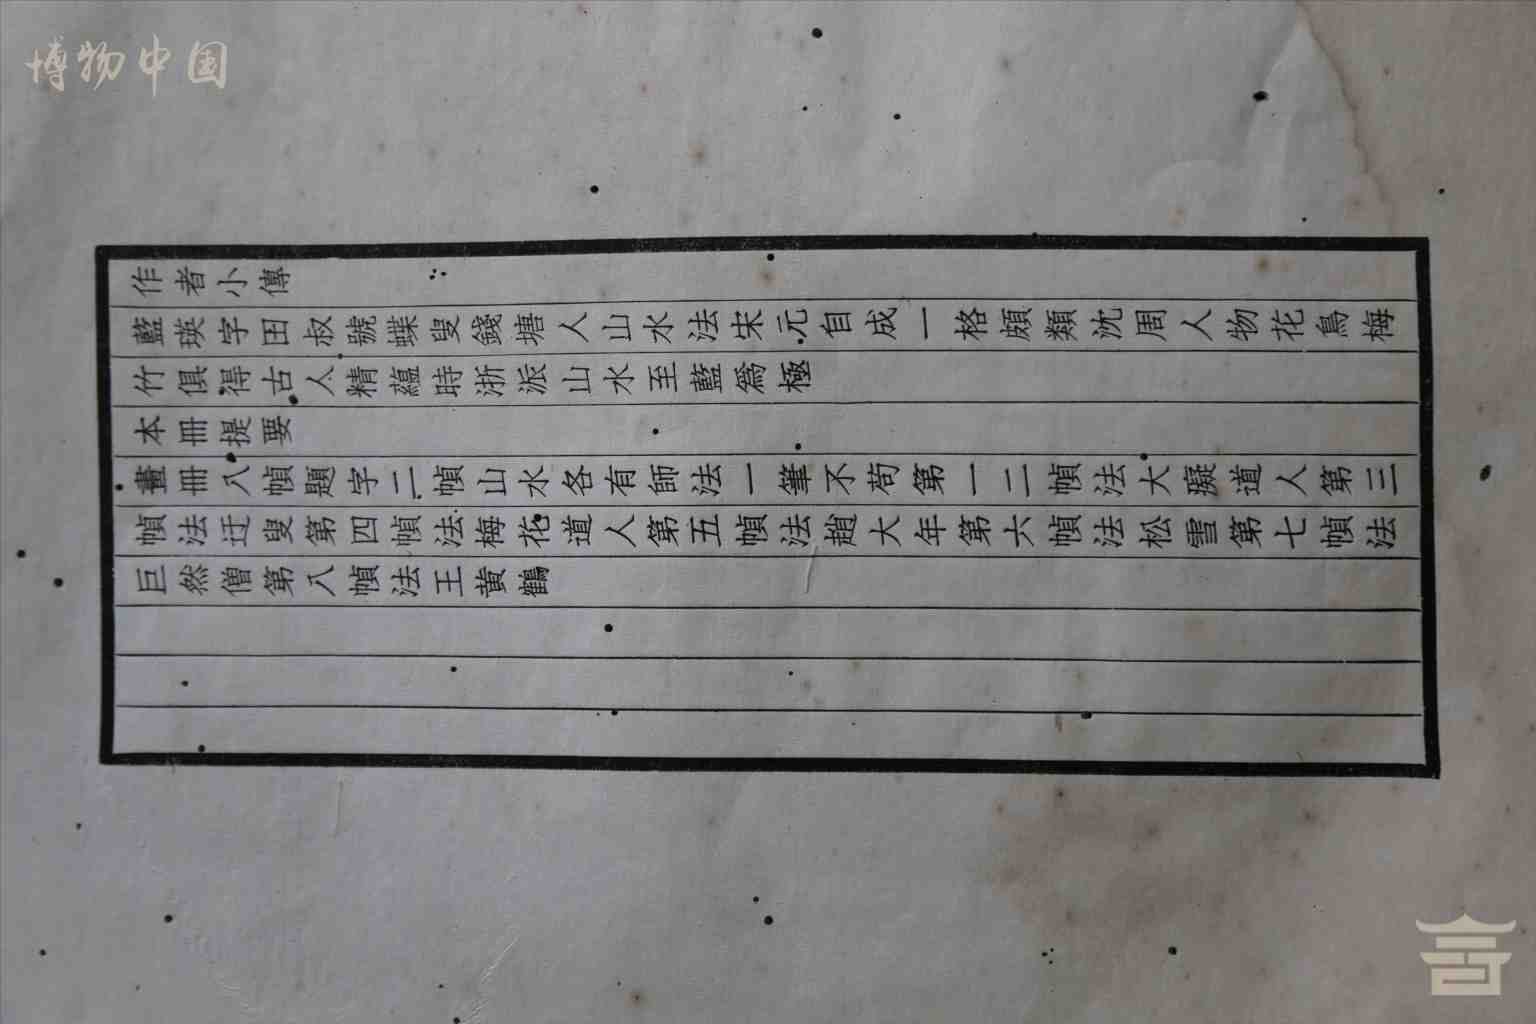 博物中国
作者小傳
藍瑛字田叔號蝶叟錢塘人山水法宋元自成一格頗類沈周人物花鳥梅
竹俱得古人精蘊時浙派山水至藍爲極
本冊提要
畫冊八幀題字二幀山水各有師法一筆不苟第一二幀法大癡道人第三
幀法迂叟第四幀法梅花道人第五幀法趙大年第六幀法松雪第七幀法
巨然僧第八幀法王黄鶴